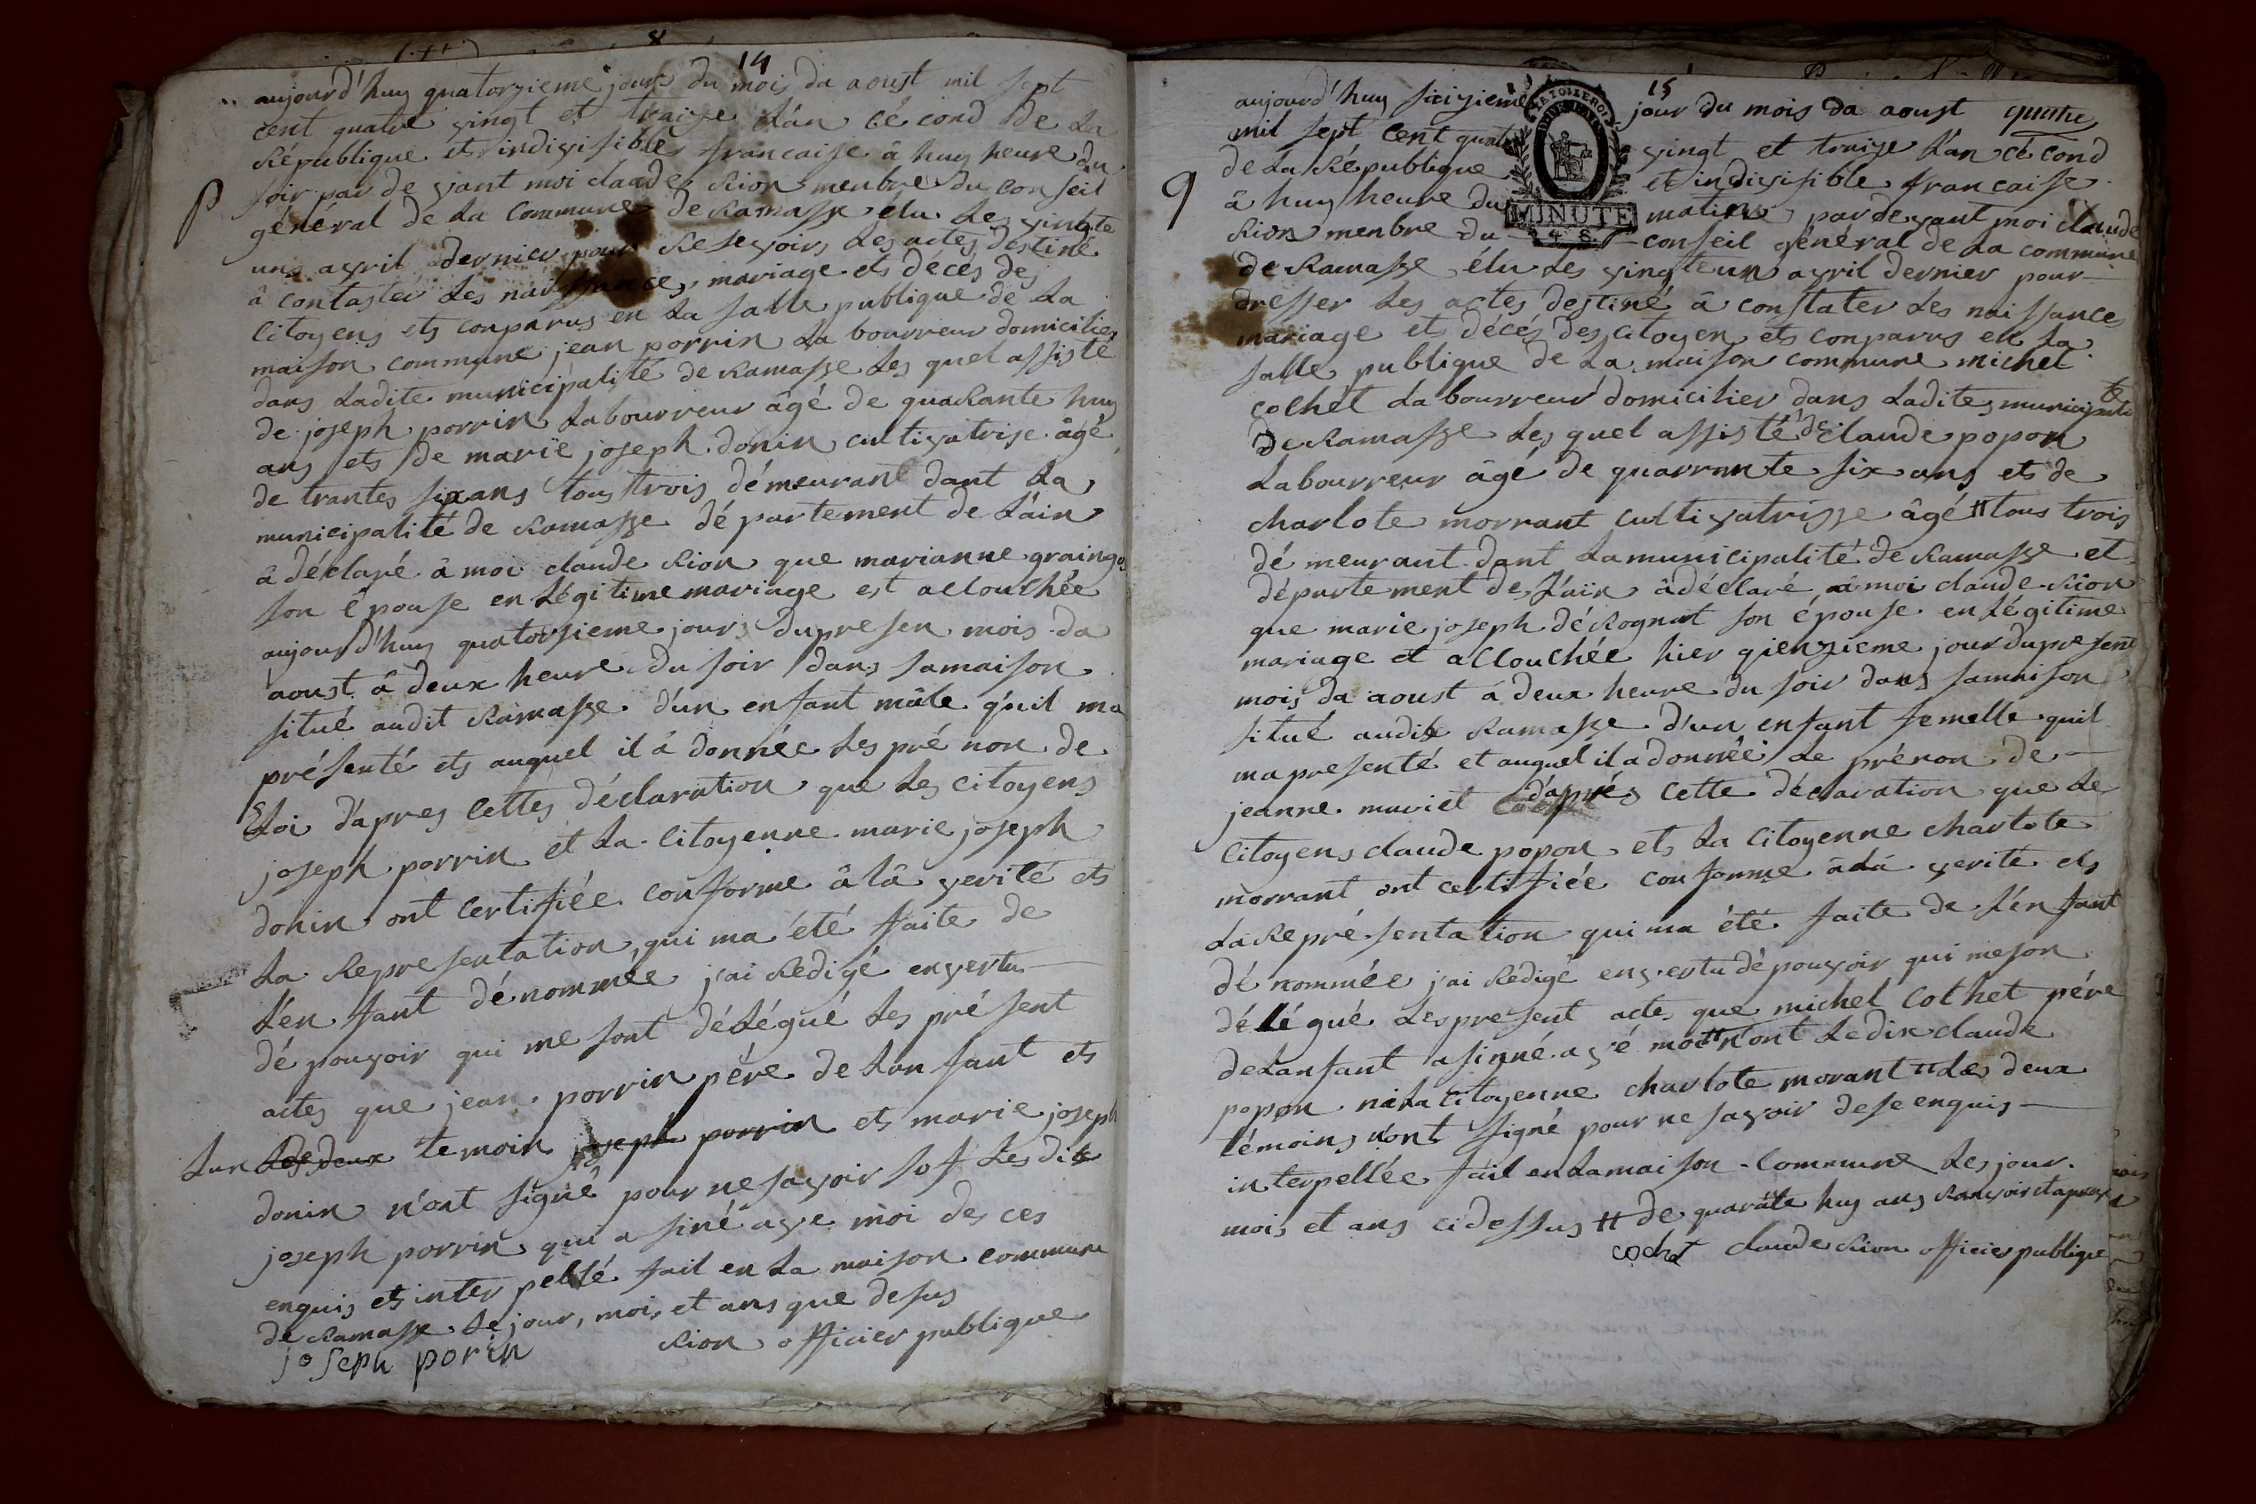 14
aujourd'huy quatorzieme jours du mois da aoust mil sept
cent quatre vingt et traize L'an cé cond de La
République et indivisible francaise â huy heure du
soir par de vant moi claude Rion menbre du conseil
général de La Commune de Ramasse élu Les vingte
une avril dernier pour Resevoirs Les actes destiné
â contaster Les naissances, mariage et décés des
Citoyens ets conparus en La salle publique de La
maison commune jean porrin La bourreur domicilier
dans Ladite municipalité de Ramasse Les quel assisté
de joseph porrin Labourreur âgé de quaRante huy
ans ets de marië joseph donin cultivatrise âgé
de trantes six ans tous trois démeurant dant La
municipalité de Ramasse département de L'ain
â déclaré â moi claude Rion que marianne grainge
son épouse en Légitime mariage est accouchée
aujourd'huy quatorsieme jours dupresen mois da
aoust â deux heure du soir dans samaison
situé audit Ramasse d'un enfant mâle qu'il ma
présenté ets auquel il â donnée Les pré non de
Eloi d'apres cettes déclaration que Les citoyens
joseph porrin et La Citoyenne marie joseph
donin ont certifiée conforme â lâ verité ets
La Representation, qui ma été faite de
L'en fant dénommée j'ai Redigé envertu
dé pouvoir qui me sont délégué Les présent
actes que jean porrin pére de Lan fant ets
Lun Les deux temoin joseph porrin ets marie joseph
donin n'ont signé pour ne savoir sof Les dit
joseph porrin qui a siné ave moi de ces
enquis ets inter pellé fait en La maison commune
de Ramasse Le jour, mois et ans que desus
joseph porin Rion officier publique
15
aujourd'huy sizieme jour du mois da aoust
mil sept cent quatre vingt et traize L'an cé cond
de La République et indivisible francaise
9
â huy heure du matin par devant moi claude
Rion menbre du conseil général de La commune
MINUTE
de Ramasse élu Les vingteun avril dernier pour
dresser Les actes destiné â constater Les naissances
mariage et décés des citoyen ets conparus en La
salle publique de La maison commune michel
cochet La bourreur domicilier dans Ladites municipalité
De Ramasse Les quel assisté de claude popon
Labourreur âgé de quarrante six ans ets de
charlote morrant cultivatrisse âgé # tous trois
dé meurant dant Lamunicipalité de Ramasse et
département de L'ain âdéclaré â moi claude Rion
que marie joseph déRognat son épouse en Légitime
mariage et accouchée hier qienzieme jour du present
mois da aoust â deux heure du soir dans samaison
situé audit Ramasse d'un enfant femelle quil
ma presenté et auquel il a donnée Le prénon de
jeanne mariet d'aprés cette déclaration que Le
Citoyens claude popon ets La Citoyenne charlote
morrant ont certifiée conforme âda verité ets
La Repré sentation qui ma été faite de L'en fant
dé nommée j'ai Rédigé envertu dé pouvoir qui me son
délégué Les present actes que michel cochet pére
deLanfant a sinné avé moi # n'ont Le dix claude
popon niLa Citoyenne charlote morant # Les deux
témoins n'ont signé pour ne savoir dese enquis
interpellée fait en Lamaison Commune Les jour
mois et ans cidessus # de quarate huy ans
cochet claude Rion officier publique